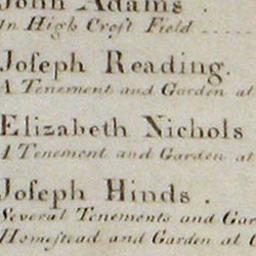 John Adams .
In High Croft Field .....
Joseph Reading.
A Tenement and Garden at
Elizabeth Nichols
A Tenement and Garden at
Joseph Hinds .
Several Tenements and Gar
Homestead and Garden at